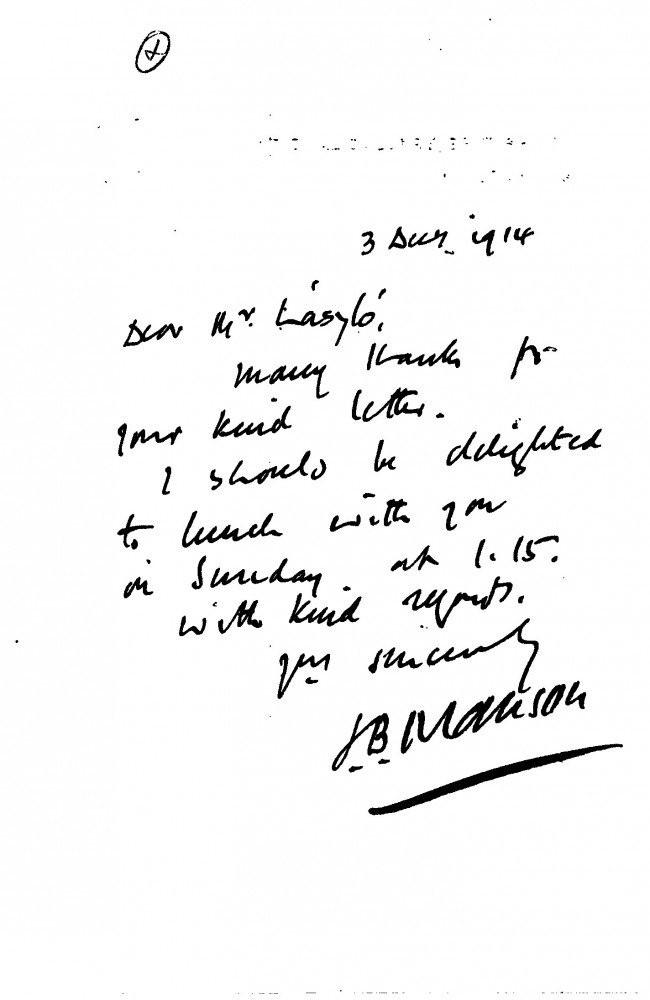 3 Decr. 1914
Dear Mr. László,
many thanks for
your kind letter.
I should be delighted
to lunch with you
on Sunday. at 1.15.
with kind regards.
yrs sincerely
J.B. Manson